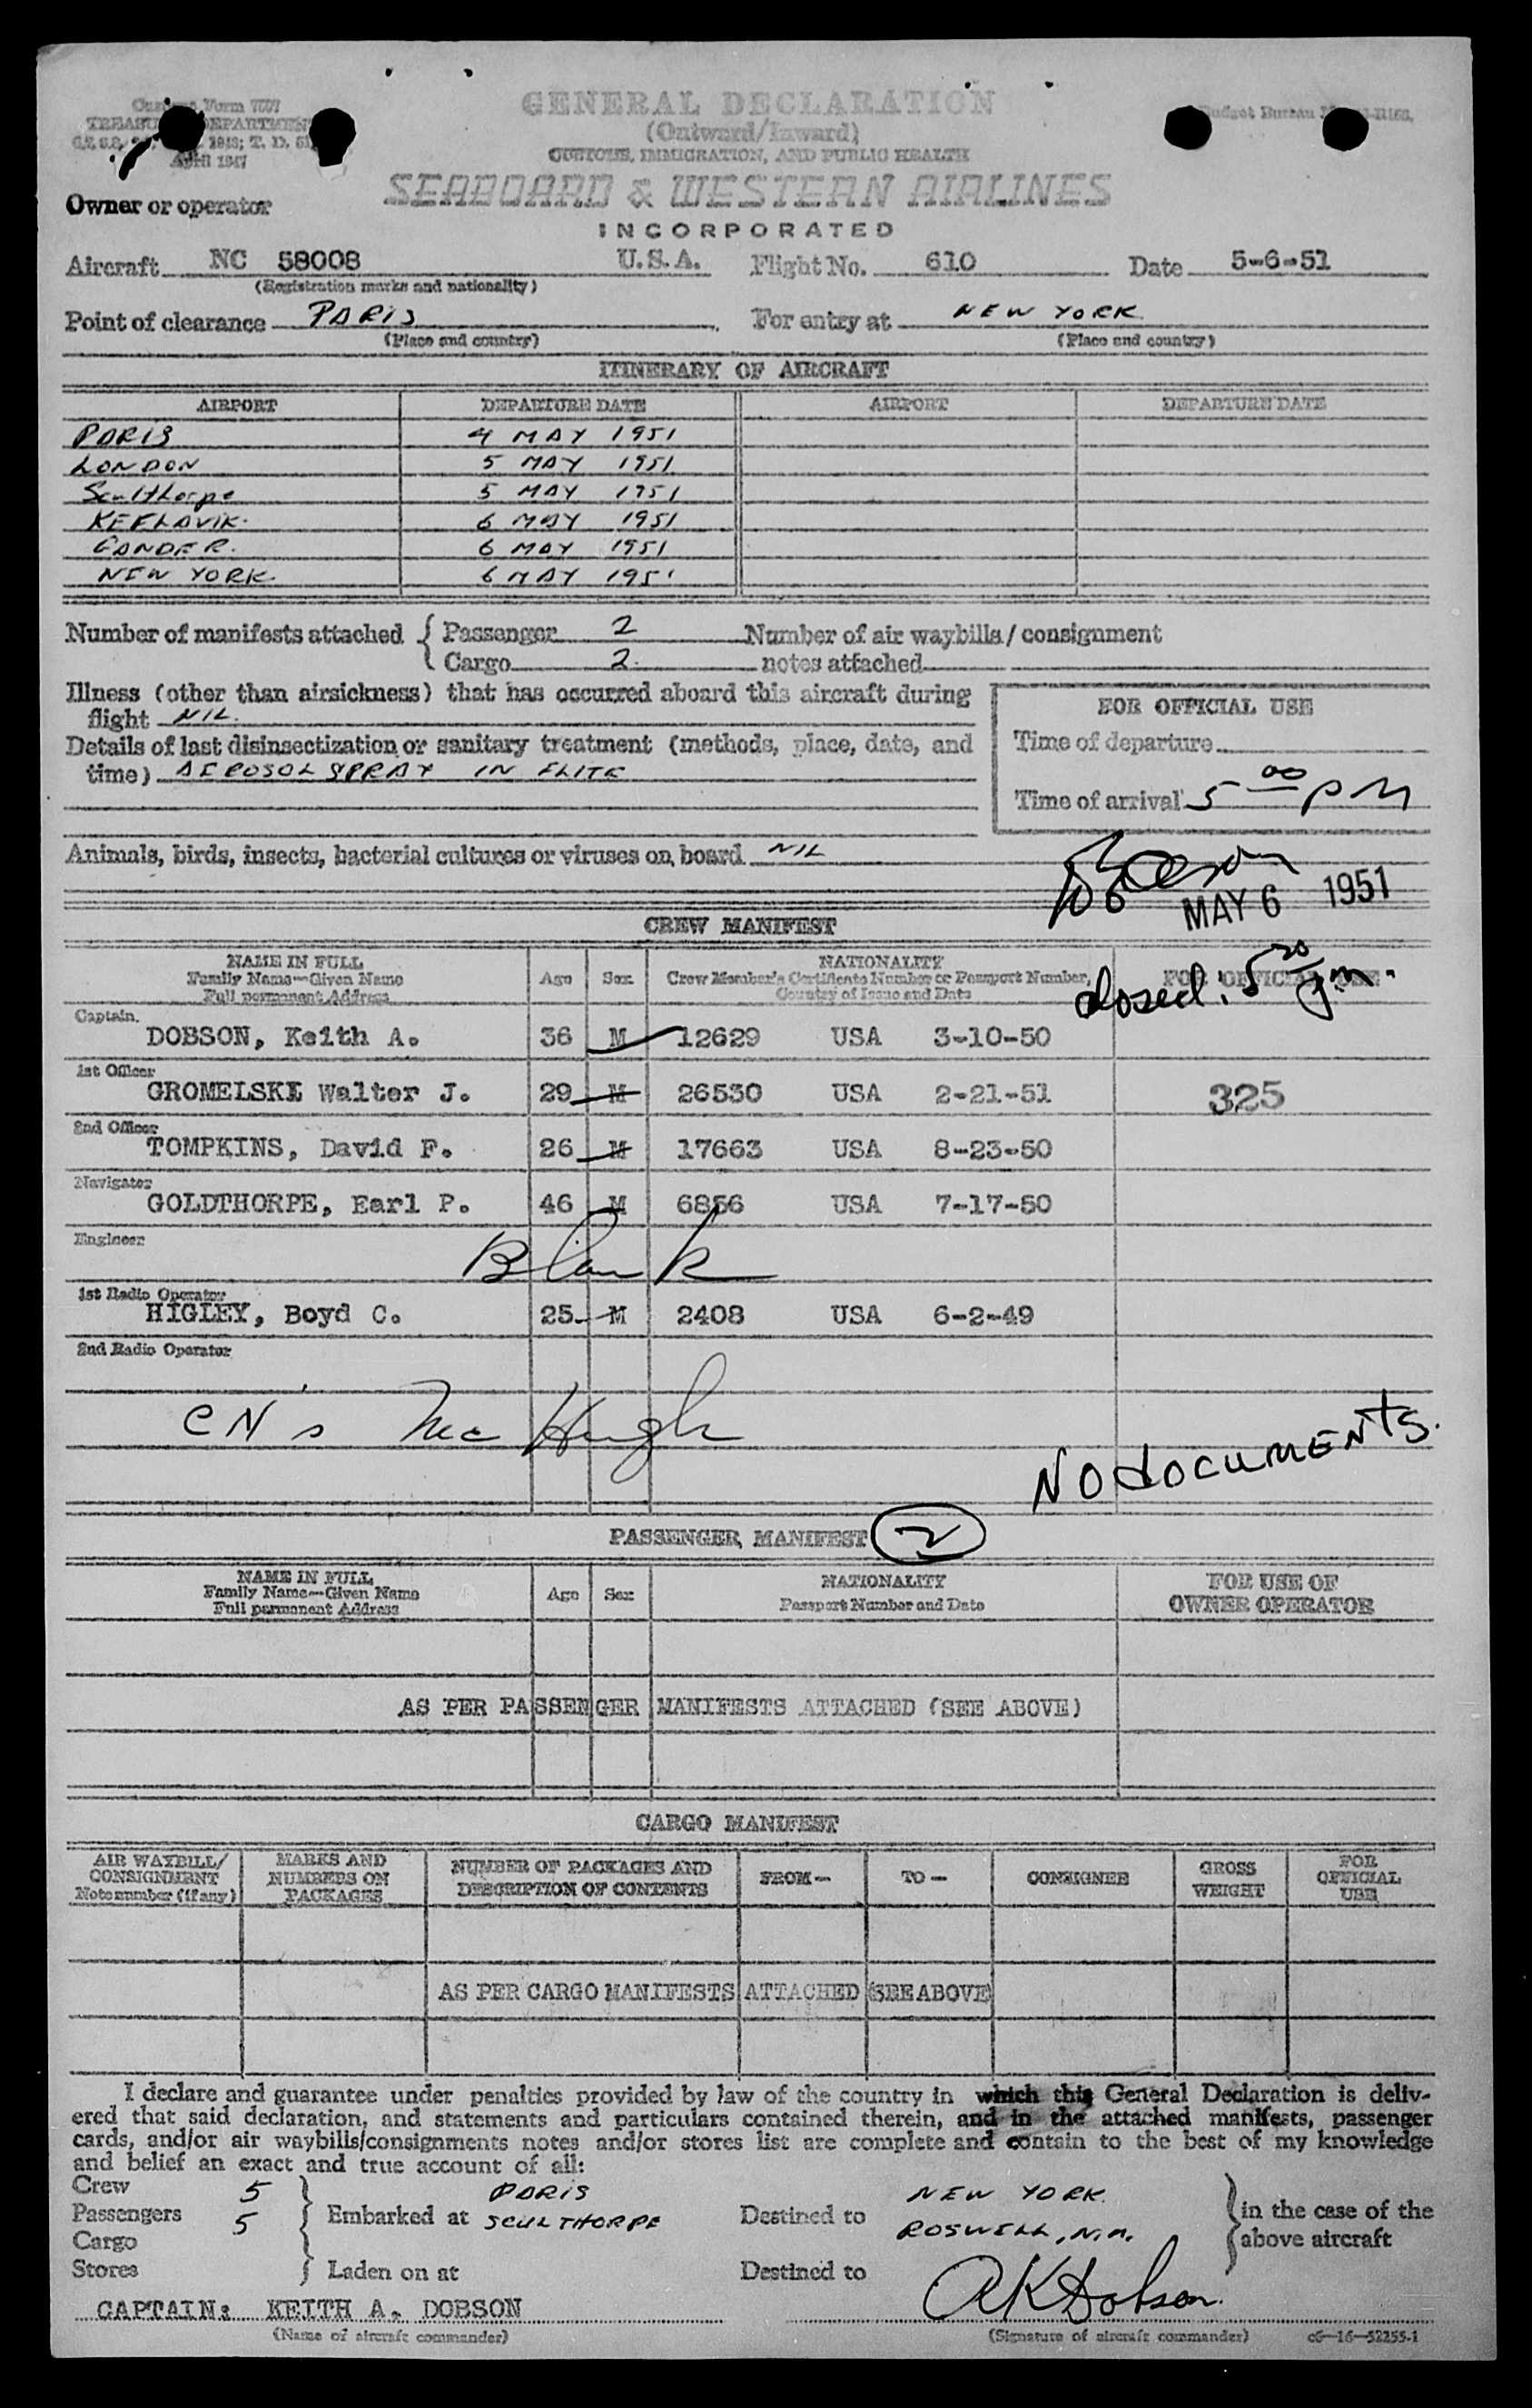 Customs Form 7507
TREASURY DEPARTMENT
1948; T. D.
April 1947
GENERAL DECLARATION
(Outward/Inward)
CUSTOMS, IMMIGRATION, AND PUBLIC HEALTH
Budget Bureau
SEABOARD & WESTERN AIRLINES
INCORPORATED
Owner or operator
Aircraft NC 58008 U.S.A. Flight No. 610 Date 5-6-51
(Registration marks and nationality)
Point of clearance PARIS For entry at NEW YORK
(Place and country) (Place and country)
ITINERARY OF AIRCRAFT
AIRPORT DEPARTURE DATE AIRPORT DEPARTURE DATE
PARIS 4 MAY 1951
LONDON 5 MAY 1951
Sculthorpe 5 MAY 1951
KEFLAVIK. 6 MAY 1951
GANDER. 6 MAY 1951
NEW YORK. 6 MAY 1951
Number of manifests attached { Passenger 2 Number of air waybills/consignment
Cargo 2. notes attached
Illness (other than airsickness) that has occurred aboard this aircraft during
flight NIL.
FOR OFFICIAL USE
Details of last disinsectization or sanitary treatment (methods, place, date, and
time) AEROSOL SPRAY IN FLITE
Time of departure
Time of arrival 5 00 PM
Animals, birds, insects, bacterial cultures or viruses on board NIL
MAY 6 1951
CREW MANIFEST
NAME IN FULL
Family Name—Given Name
Full permanent Address
Age Sex
NATIONALITY
Crew Member's Certificate Number or Passport Number,
Country of Issue and Date
FOR OFFICIAL USE
closed: 5 20 p.m.
Captain.
DOBSON, Keith A. 36 M 12629 USA 3-10-50
1st Officer
GROMELSKI Walter J. 29 M 26530 USA 2-21-51 325
2nd Officer
TOMPKINS, David F. 26 M 17663 USA 8-23-50
Navigator
GOLDTHORPE, Earl P. 46 M 6856 USA 7-17-50
Engineer
Blank
1st Radio Operator
HIGLEY, Boyd C. 25 M 2408 USA 6-2-49
2nd Radio Operator
McHugh
NO DOCUMENTS.
PASSENGER MANIFEST 2
NAME IN FULL
Family Name—Given Name
Full permanent Address
Age Sex
NATIONALITY
Passport Number and Date
FOR USE OF
OWNER OPERATOR
AS PER PASSENGER MANIFESTS ATTACHED (SEE ABOVE)
CARGO MANIFEST
AIR WAYBILL/
CONSIGNMENT
Note number (if any)
MARKS AND
NUMBERS ON
PACKAGES
NUMBER OF PACKAGES AND
DESCRIPTION OF CONTENTS
FROM—
TO—
CONSIGNEE
GROSS
WEIGHT
FOR
OFFICIAL
USE
AS PER CARGO MANIFESTS ATTACHED (SEE ABOVE)
I declare and guarantee under penalties provided by law of the country in which this General Declaration is deliv-
ered that said declaration, and statements and particulars contained therein, and in the attached manifests, passenger
cards, and/or air waybills/consignments notes and/or stores list are complete and contain to the best of my knowledge
and belief an exact and true account of all:
Crew 5 PARIS NEW YORK.
Passengers 5 Embarked at SCULTHORPE Destined to ROSWELL, N.M. in the case of the
Cargo above aircraft
Stores Laden on at Destined to
CAPTAIN: KEITH A. DOBSON
(Name of aircraft commander) (Signature of aircraft commander) c6—16—52255-1